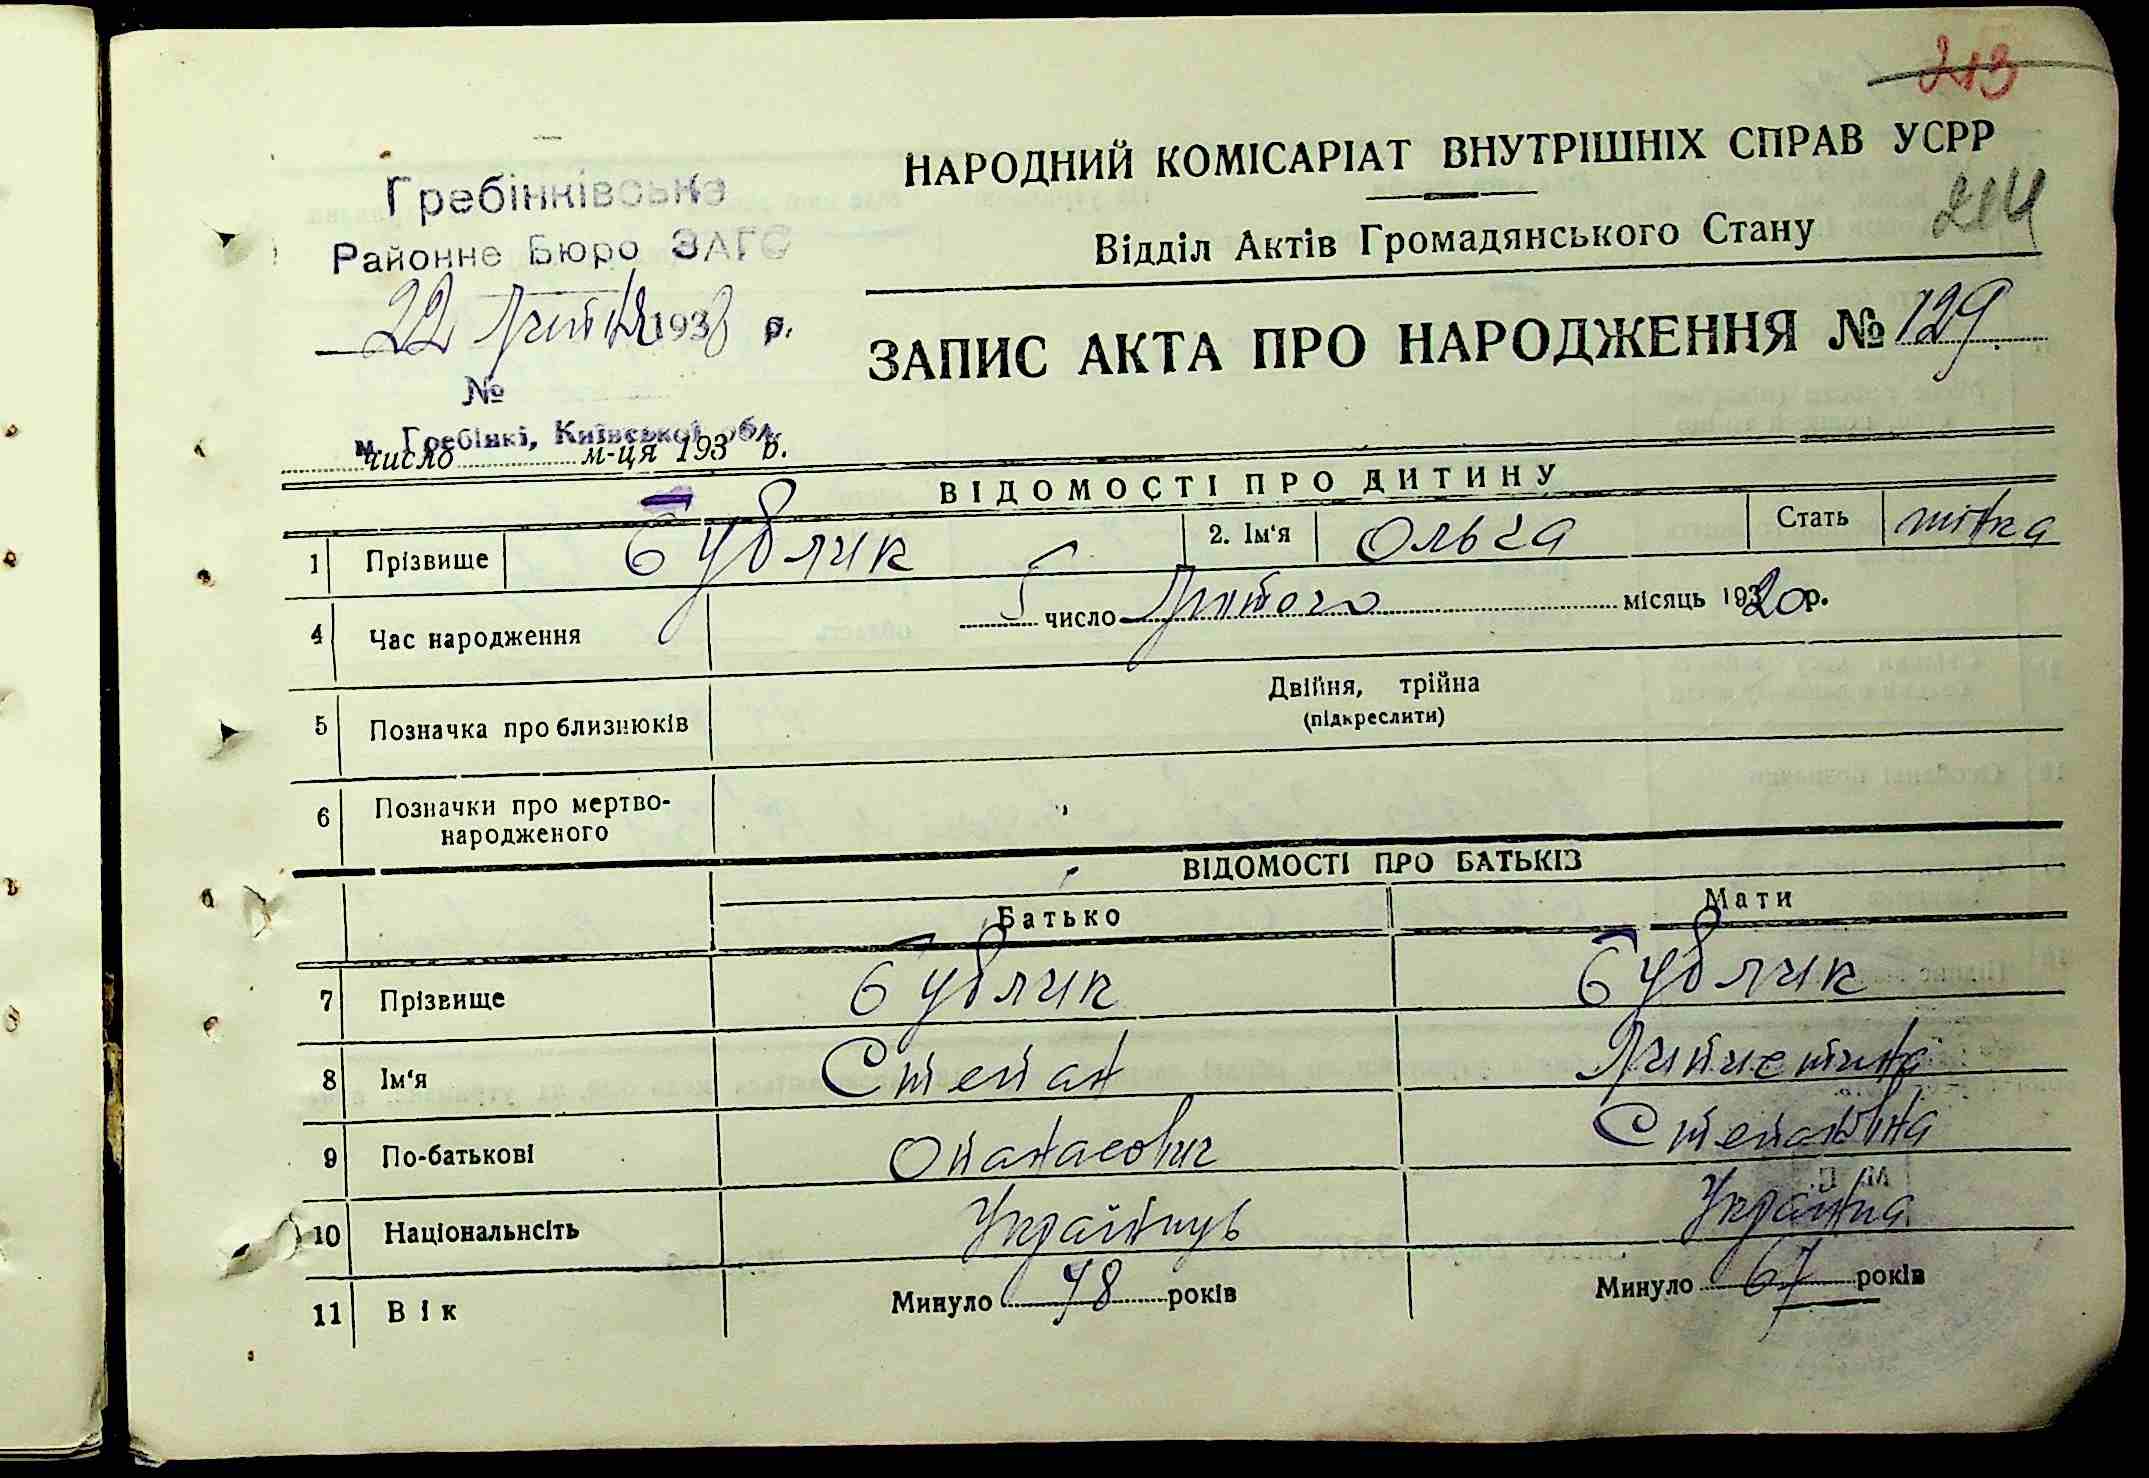 213
НАРОДНИЙ КОМІСАРІАТ ВНУТРІШНІХ СПРАВ УСРР
214
Відділ Актів Громадянського Стану
Гребінківське
Районне Бюро ЗАГС
22 Лютня 1938 р.
№
м. Гребінкі, Київської обл.
число м-ця 193 р.
ЗАПИС АКТА ПРО НАРОДЖЕННЯ № 129
ВІДОМОСТІ ПРО ДИТИНУ
1 Прізвище Бублик 2. Ім‘я Ольга Стать жінка
4 Час народження 5 число Лютого місяць 1920 р.
5 Позначка про близнюків Двійня, трійна
(підкреслити)
6 Позначки про мертво-
народженого
ВІДОМОСТІ ПРО БАТЬКІВ
Батько Мати
7 Прізвище Бублик Бублик
8 Ім‘я Степан
9 По-батькові Опанасович Степановна
10 Національнсіть Українць Українка
11 Вік Минуло 78 років Минуло 67 років
М. П.